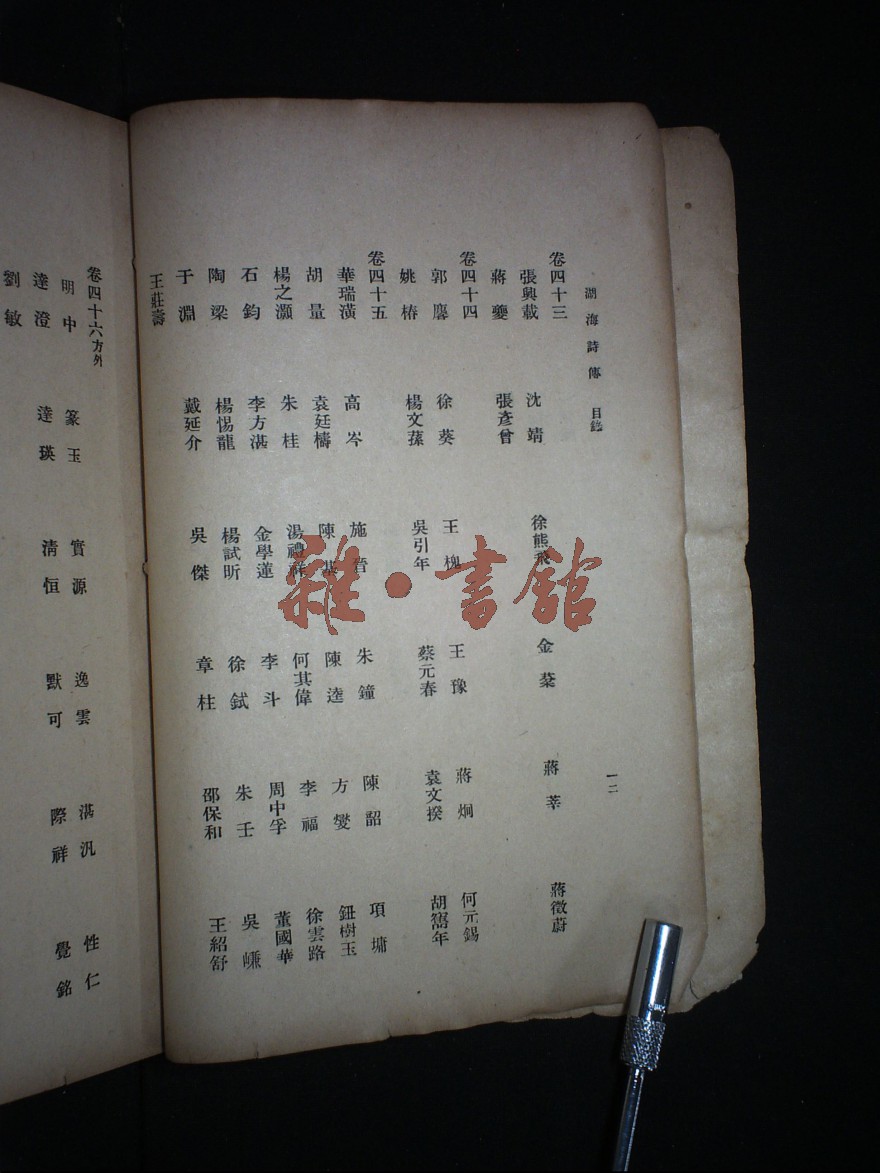 湖海詩傳 目錄 一二
卷四十三
張興載 沈靖 徐熊飛 金棻 蔣莘 蔣徵蔚
蔣夔 張彥曾
卷四十四
郭麐 徐葵 王槐 王豫 蔣炯 何元錫
姚椿 楊文蓀 吳引年 蔡元春 袁文揆 胡篙年
卷四十五
華瑞潢 高岑 施晉 朱鐘 陳韶 項墉
胡量 袁廷檮 陳基 陳逵 方燮 鈕樹玉
楊之灝 朱桂 湯禮祥 何其偉 李福 徐雲路
石鈞 李方湛 金學蓮 李斗 周中孚 董國華
陶梁 楊惕龍 楊試昕 徐鉽 朱壬 吳嵰
于淵 戴延介 吳傑 章柱 邵保和 王紹舒
王莊壽
卷四十六方外
明中 篆玉 實源 逸雲 湛汎 性仁
達澄 達瑛 清恒 默可 際祥 覺銘
劉敏
雜·書館